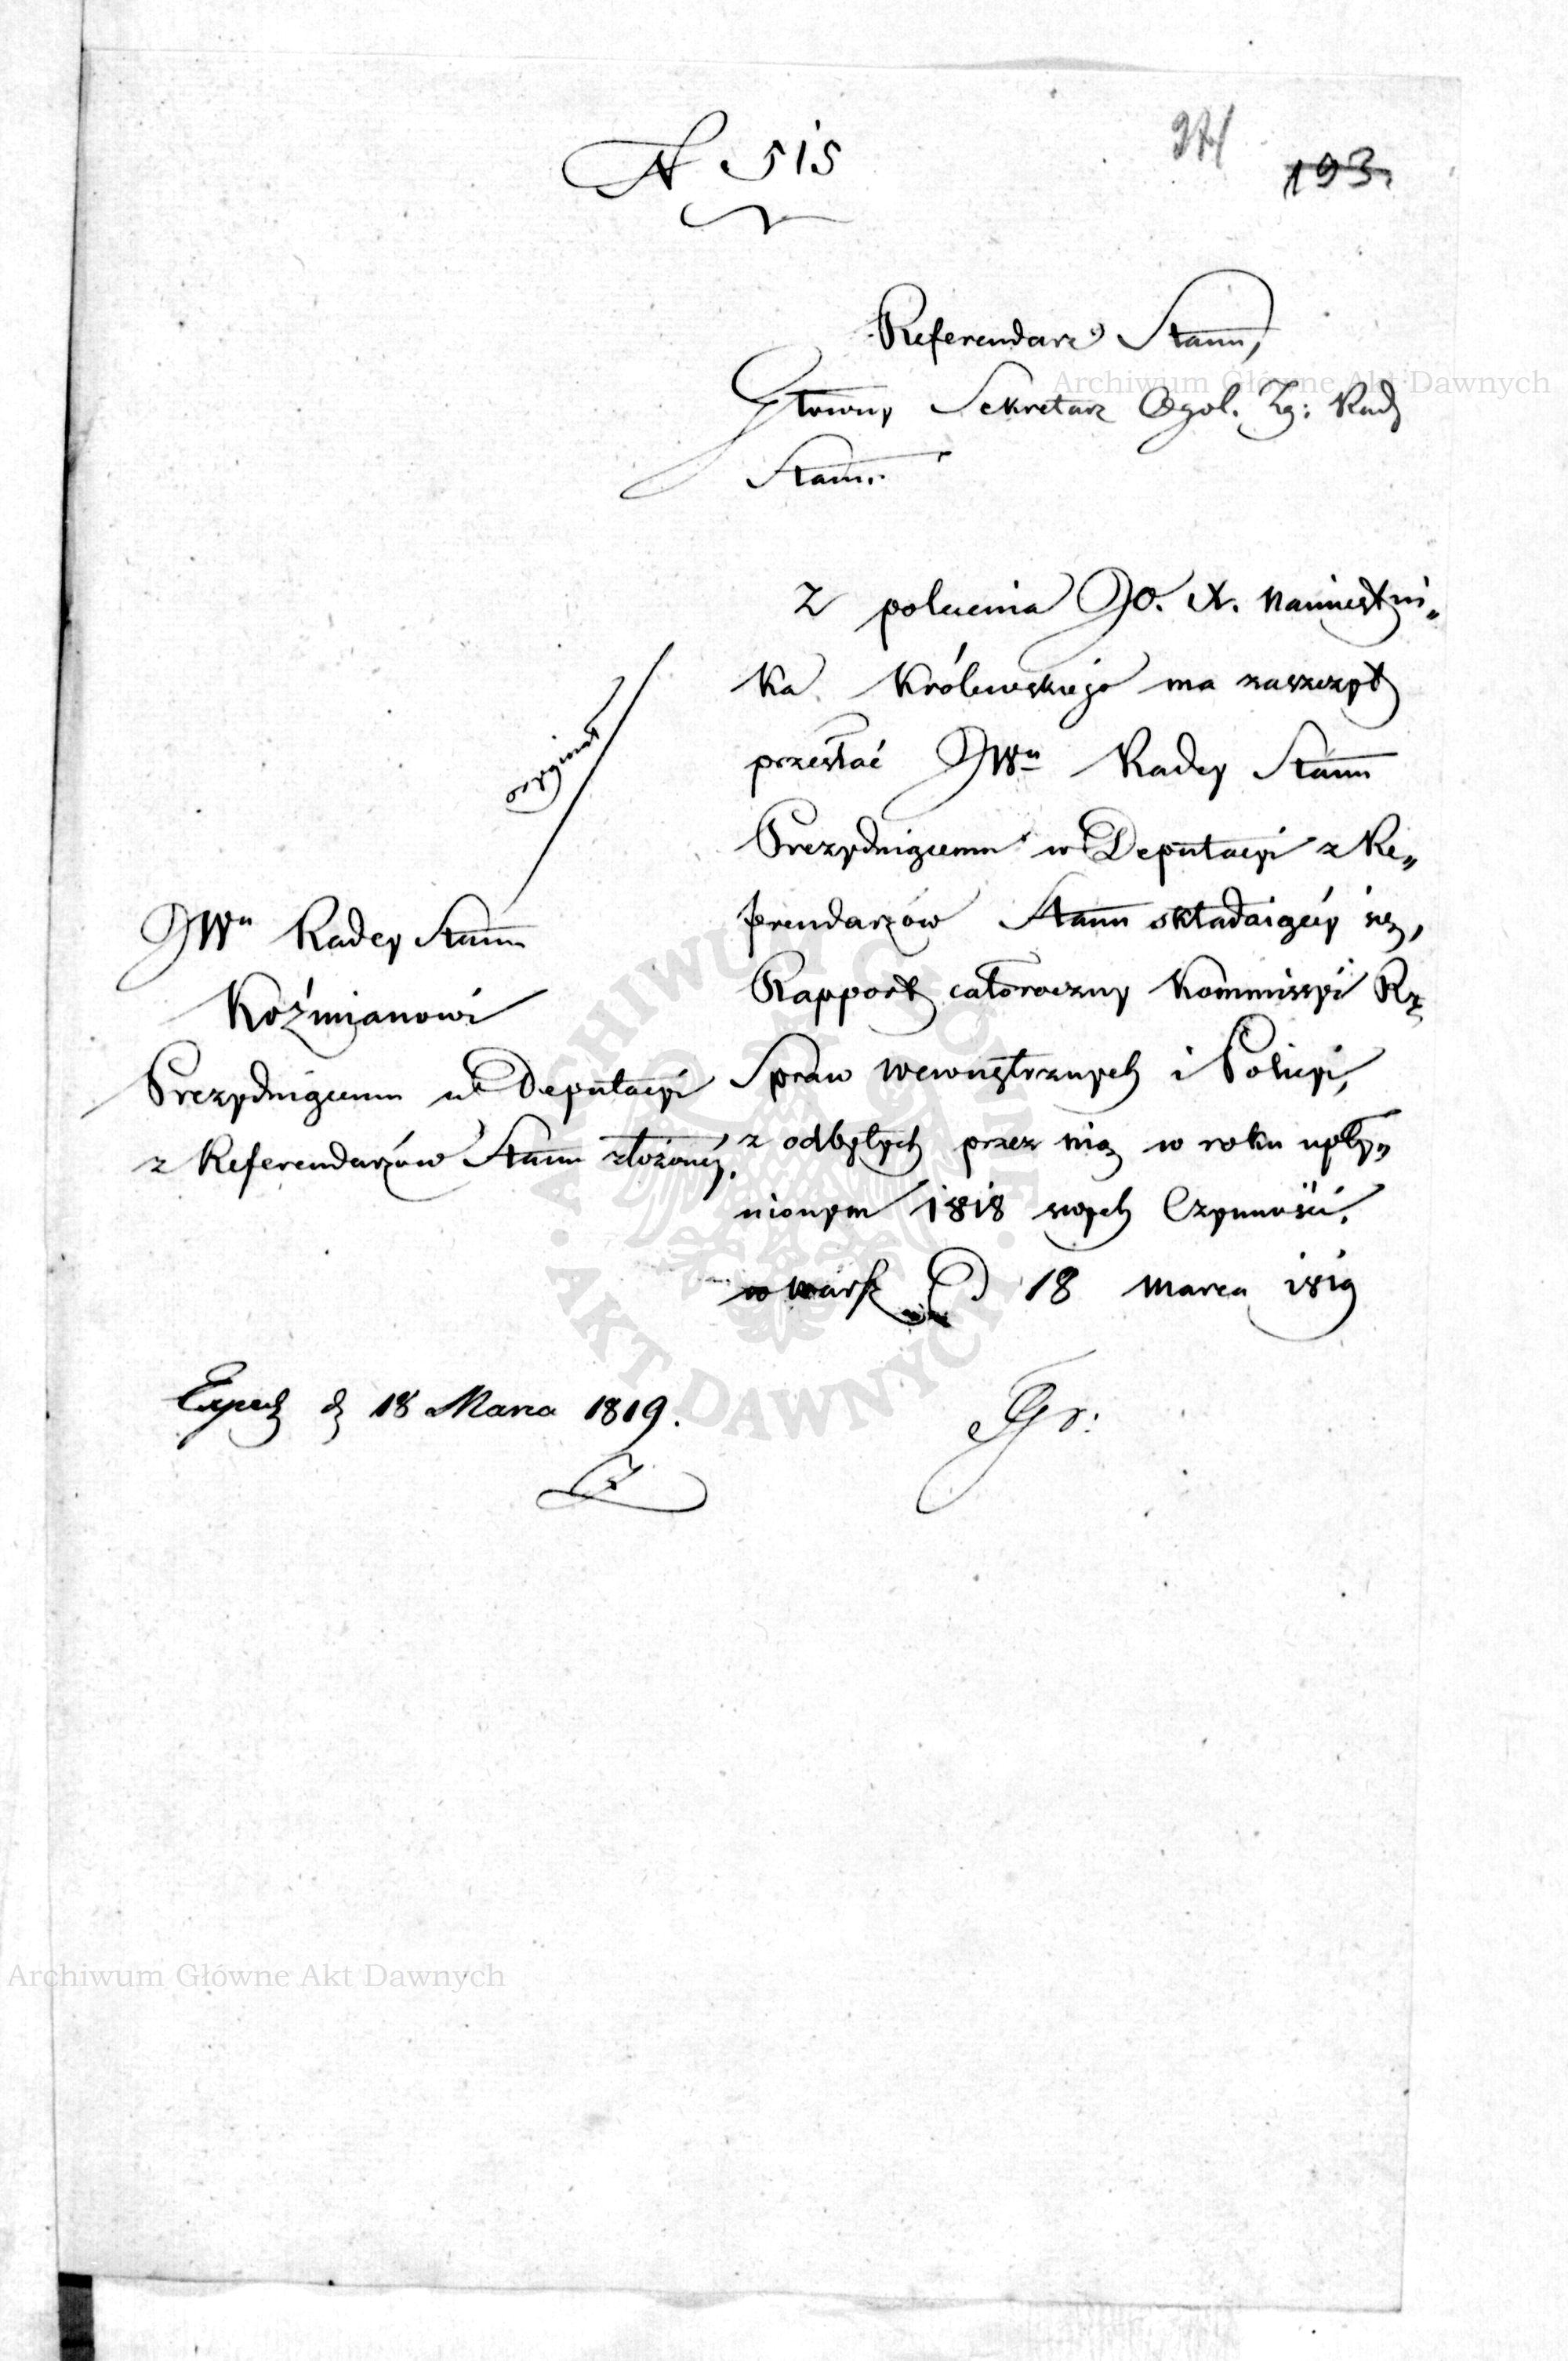 N 515
371
193.
Referendarz Stanu,
Główny Sekretarz Ogol. Zg: Rady
Stanu.
Z polecenia JO. X. Namiestni„
ka Królewskiego ma zaszczyt
przesłać JWu Radcy Stanu
Prezyduiącemu w Deputacyi z Re„
ferendarzów Stanu składaiącéy się,
Rapport całoroczny Kommissyi Rz
Spraw Wewnętrznych i Policyi,
z odbytych przez nią w roku upły„
nionym 1818 swych Czynności.
w Warsz D 18 Marca 1819
Gr:
oryginał
JWu Radcy Stanu
Koźmianowi
Prezyduiącemu w Deputacyi
z Referendarzów Stanu złożonéy.
Exped d 18 Marca 1819.
Archiwum Główne Akt Dawnych
Archiwum Główne Akt Dawnych
ARCHIWUM GŁÓWNE · AKT DAWNYCH ·